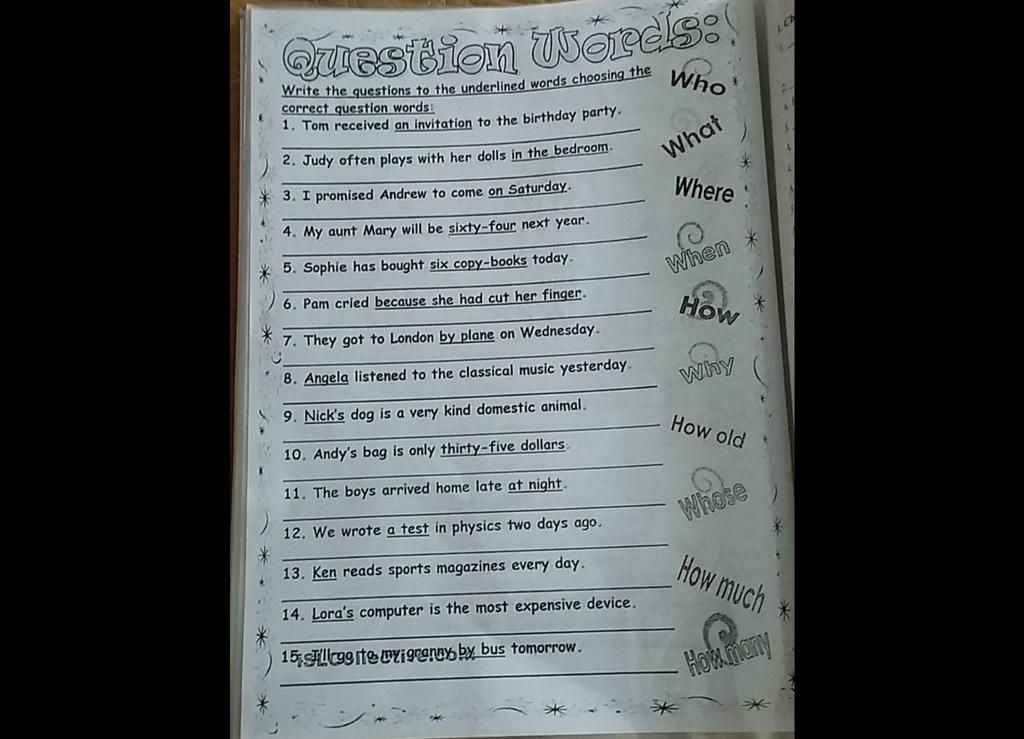 Question Words:
Write the questions to the underlined words choosing the
correct question words:
1. Tom received an invitation to the birthday party.
2. Judy often plays with her dolls in the bedroom.
3. I promised Andrew to come on Saturday.
4. My aunt Mary will be sixty-four next year.
5. Sophie has bought six copy-books today.
6. Pam cried because she had cut her finger.
7. They got to London by plane on Wednesday.
8. Angela listened to the classical music yesterday.
9. Nick's dog is a very kind domestic animal.
10. Andy's bag is only thirty-five dollars.
11. The boys arrived home late at night.
12. We wrote a test in physics two days ago.
13. Ken reads sports magazines every day.
14. Lora's computer is the most expensive device.
15. I'll go to my granny by bus tomorrow.
iSLCollective.com
Who
What
Where
When
How
Why
How old
Whose
How much
How many